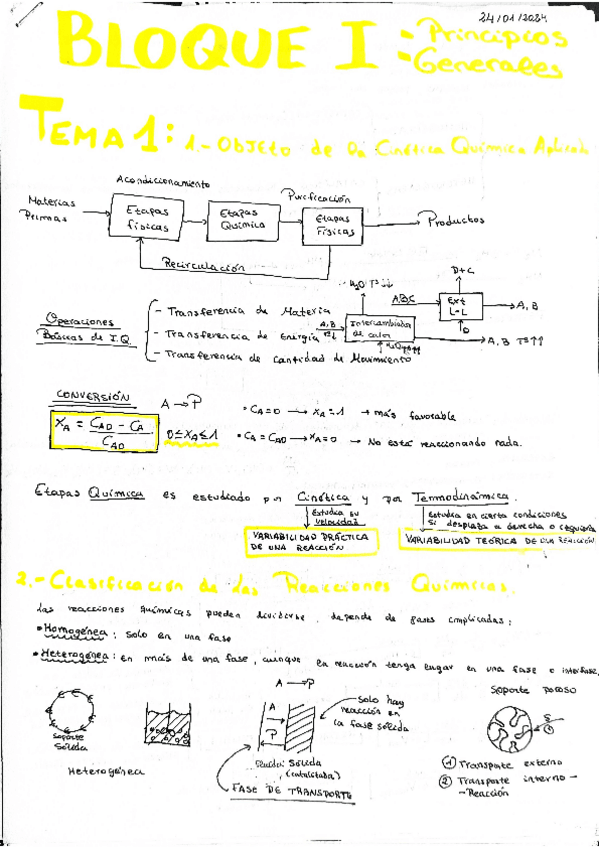 24/01/2024
BLOQUE I - Principios
- Generales
TEMA 1: 1.- Objeto de la Cinética Química Aplicada
Acondicionamiento
Purificación
Materias Primas
Etapas físicas
Etapas Química
Etapas Físicas
Productos
Recirculación
Operaciones Básicas de I.Q.
- Transferencia de Materia
- Transferencia de Energía
- Transferencia de Cantidad de Movimiento
A, B
Intercambiador de calor
A, B Tª↑↑
ABC
Ext L-L
D+C
A, B
D
CONVERSIÓN A → P
X_A = (C_A0 - C_A) / C_A0
0 ≤ X_A ≤ 1
• C_A = 0 → X_A = 1 → más favorable
• C_A = C_A0 → X_A = 0 → No está reaccionando nada.
Etapas Química es estudiado por Cinética y por Termodinámica.
Estudia su velocidad
VARIABILIDAD PRÁCTICA DE UNA REACCIÓN
Estudia en cierta condiciones si desplaza a derecha o izquierda
VARIABILIDAD TEÓRICA DE UNA REACCIÓN
2.- Clasificación de las Reacciones Químicas.
Las reacciones químicas pueden dividirse, depende de fases implicadas:
• Homogénea: solo en una fase
• Heterogénea: en más de una fase, aunque la reacción tenga lugar en una fase o interfase.
A → P
Soporte Sólida
Heterogénea
A
P
Solo hay reacción en la fase sólida
Sólida (catalizada)
FASE DE TRANSPORTE
Soporte poroso
① Transporte externo
② Transporte interno -
- Reacción